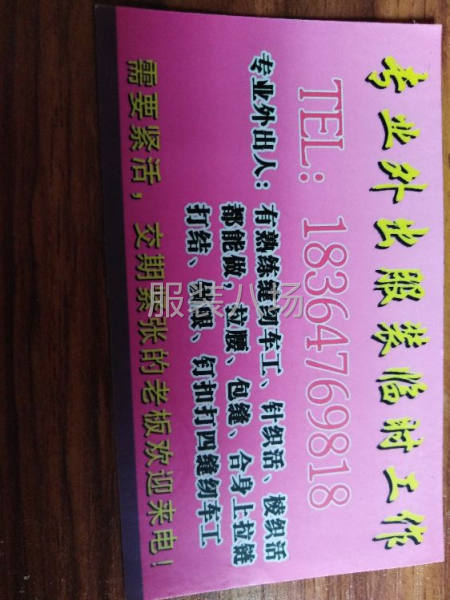 专业外出服装临时工作
TEL：18364769818
专业外出人：有熟练缝纫车工、针织活、梭织活
都能做，拉腰、包缝、合身上拉链
打结、锁眼、钉扣打四缝纫车工
需要紧活，交期紧张的老板欢迎来电！
服装八场